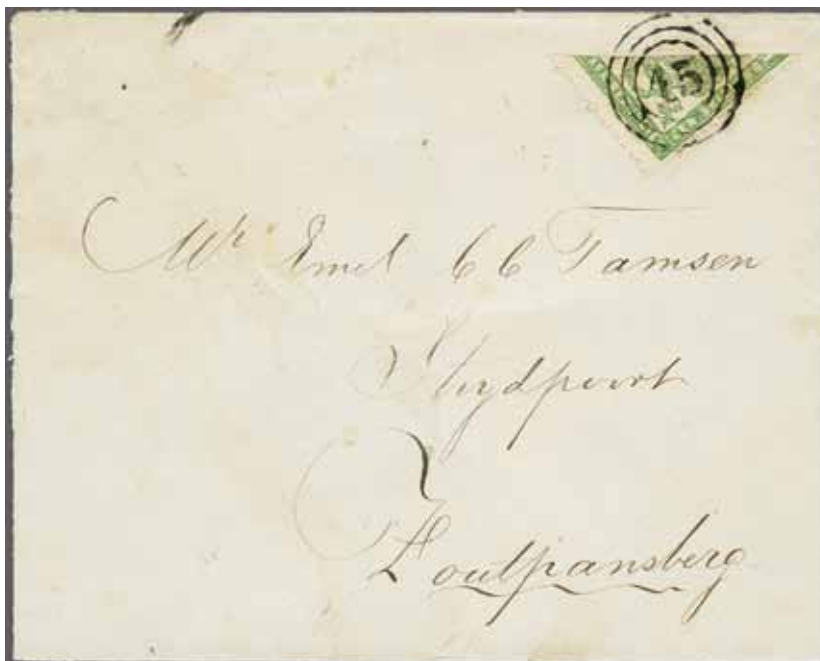 45
Mr Emil C C Tamsen
Nylpoort
Zoutpansberg